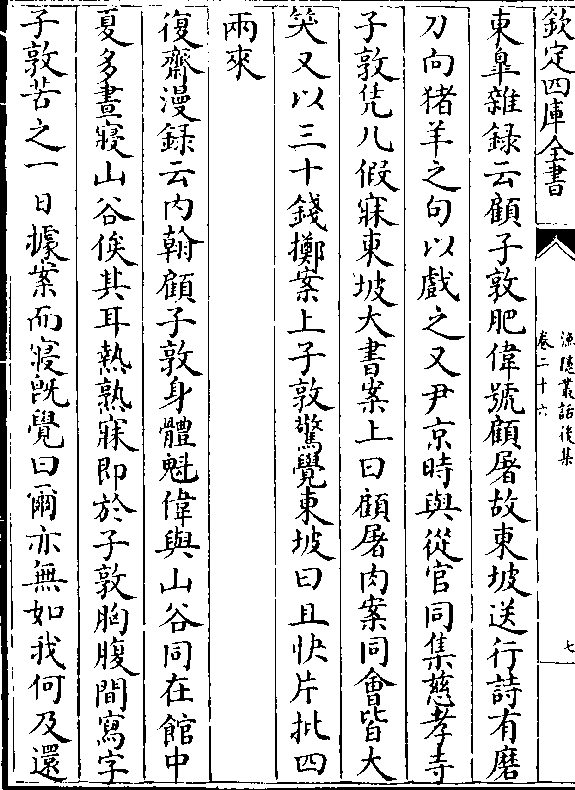 欽定四庫全書
漁隱叢話後集
卷二十六
七
東臯雜録云顧子敦肥偉號顧屠故東坡送行詩有磨
刀向猪羊之句以戲之又尹京時與從官同集慈孝寺
子敦凭几假寐東坡大書案上曰顧屠肉案同會皆大
笑又以三十錢擲案上子敦驚覺東坡曰且快片批四
兩來
復齋漫録云内翰顧子敦身體魁偉與山谷同在館中
夏多晝寢山谷俟其耳熱熟寐即於子敦胸腹間寫字
子敦苦之一日據案而寢旣覺曰爾亦無如我何及還